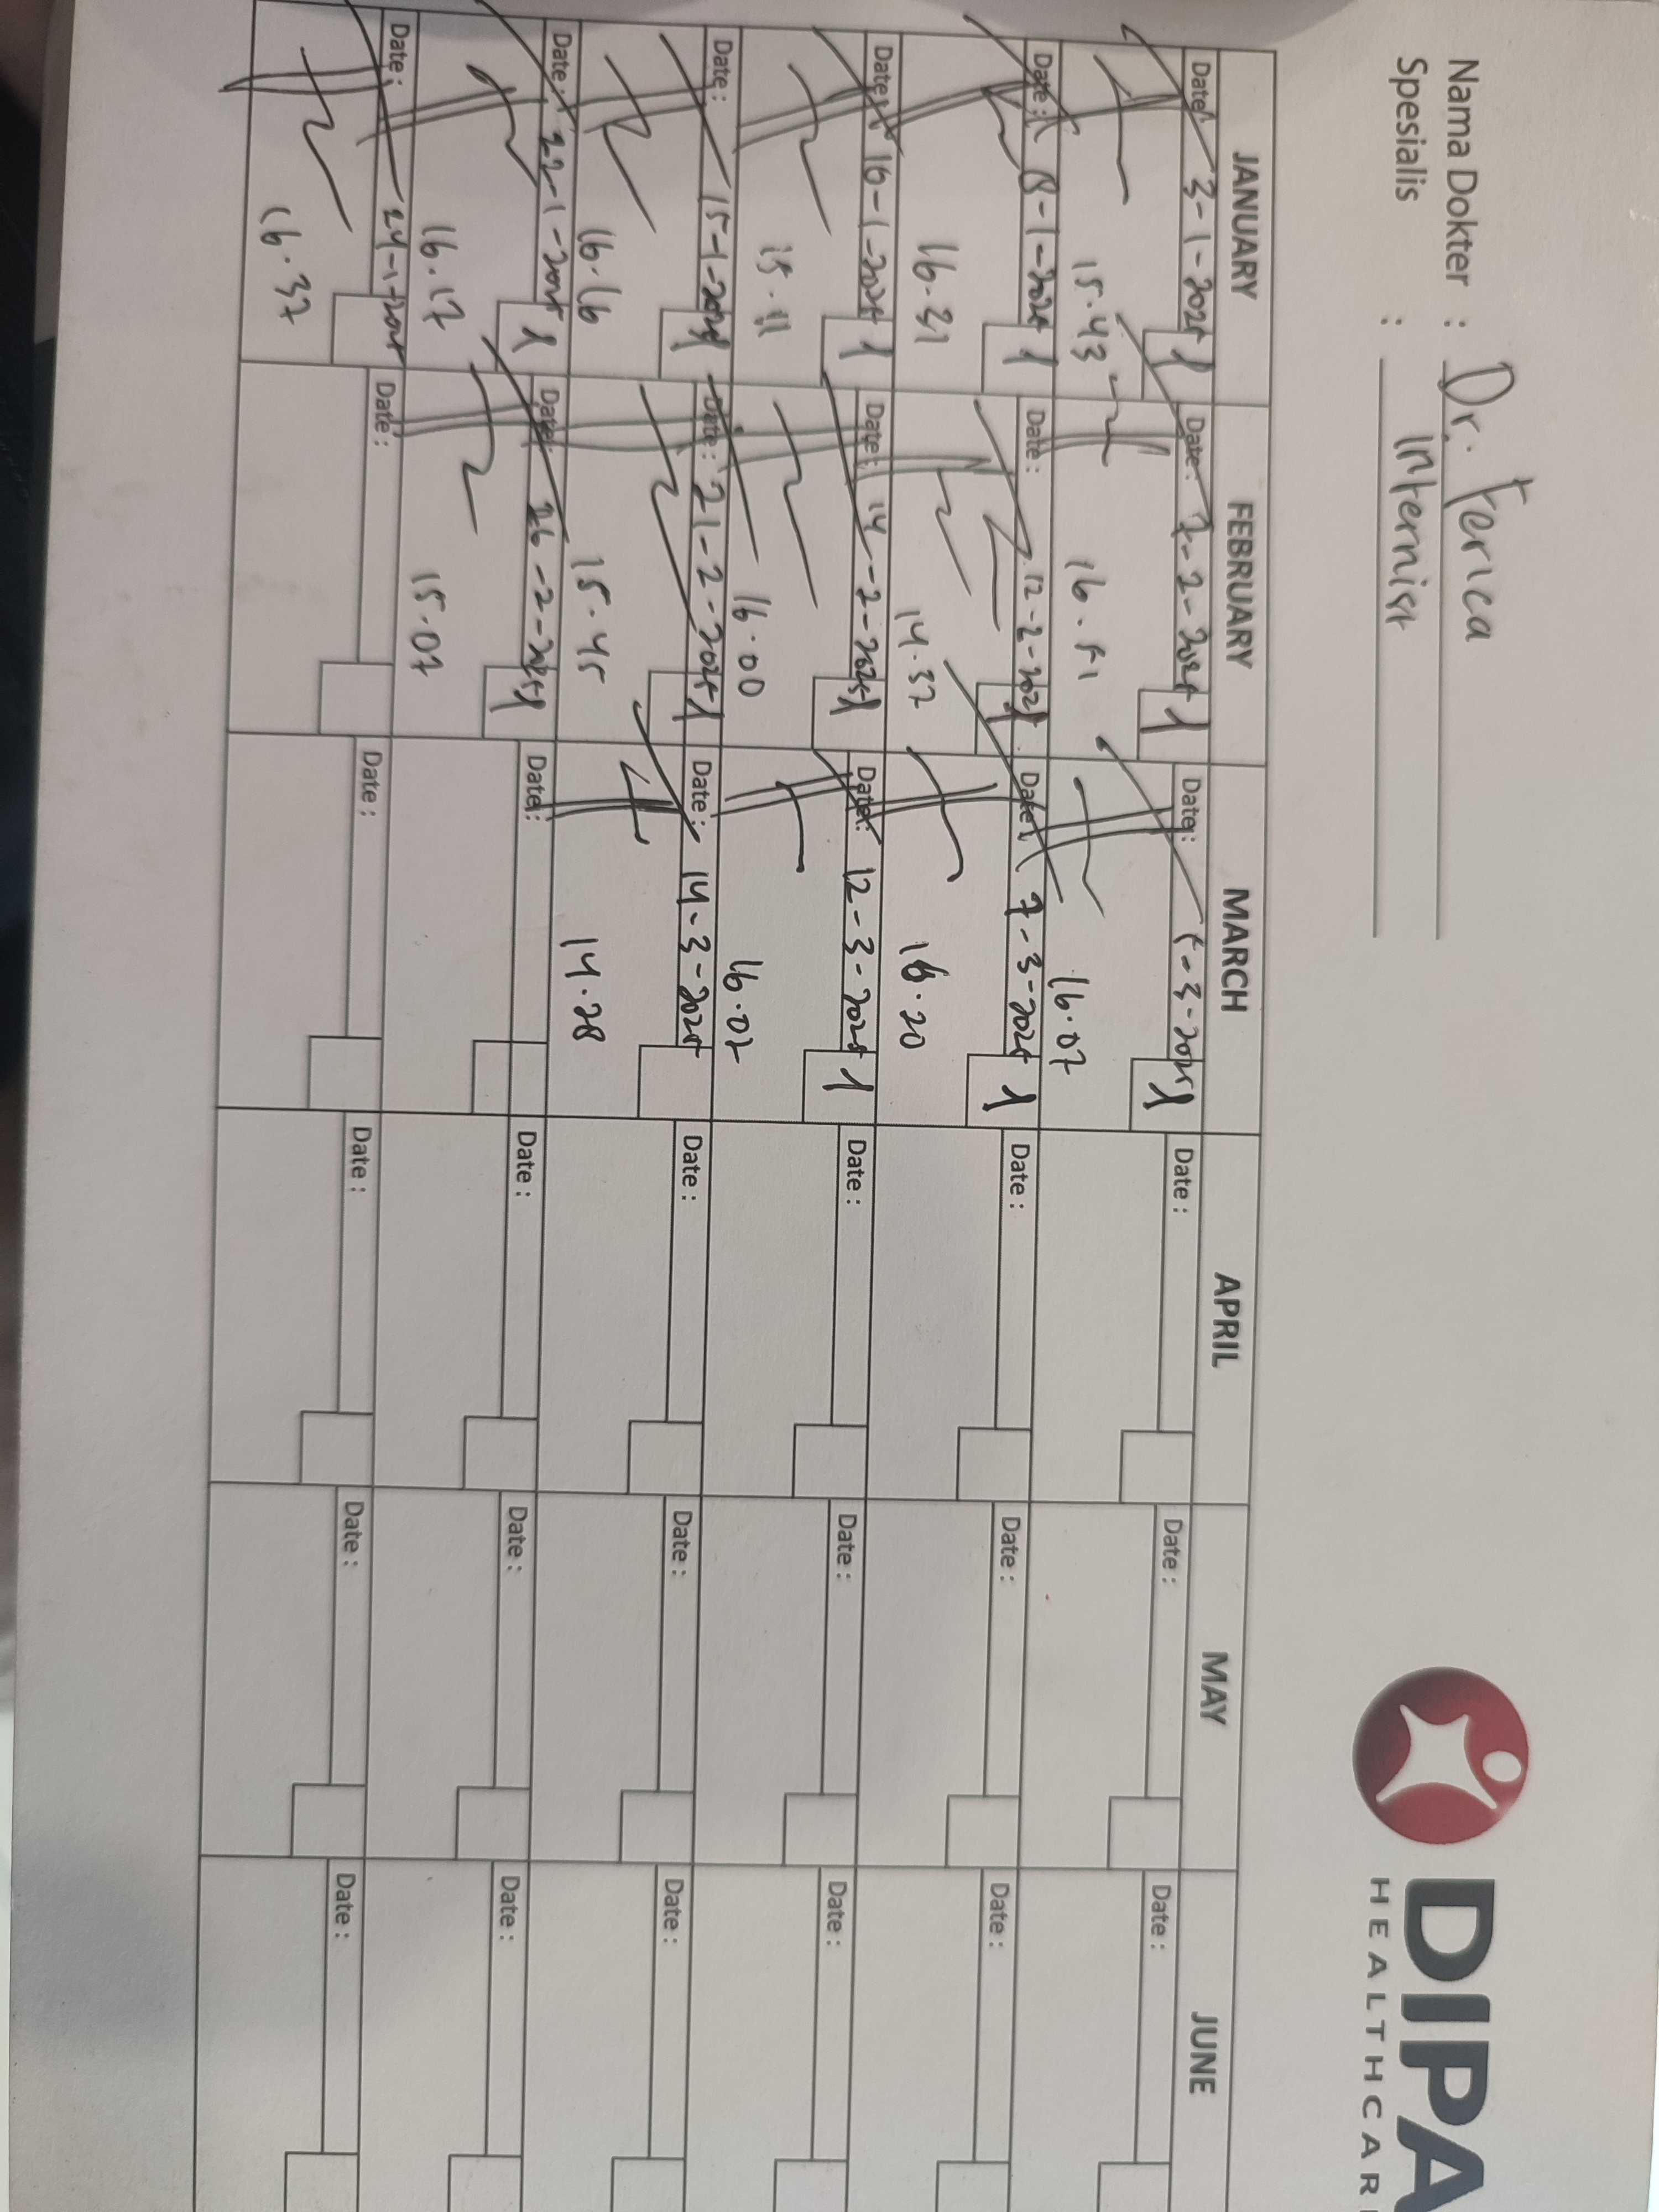 Nama Dokter : Dr. Ferica
Spesialis : Internist
DIPA
HEALTHCAR
JANUARY FEBRUARY MARCH APRIL MAY JUNE
Date: 3-1-2025 1 Date: 7-2-2025 1 Date: 5-3-2025 1 Date: Date: Date:
15.43 16.51 16.07
Date: 8-1-2025 1 Date: 12-2-2025 1 Date: 7-3-2025 1 Date: Date: Date:
16.31 14.37 16.20
Date: 10-1-2025 1 Date: 14-2-2025 1 Date: 12-3-2025 1 Date: Date: Date:
15.11 16.00 16.07
Date: 15-1-2025 1 Date: 21-2-2025 1 Date: 14-3-2025 Date: Date: Date:
16.16 15.45 14.28
Date: 22-1-2025 1 Date: 26-2-2025 1 Date: Date: Date: Date:
16.17 15.07
Date: 24-1-2025 Date: Date: Date: Date: Date:
16.37